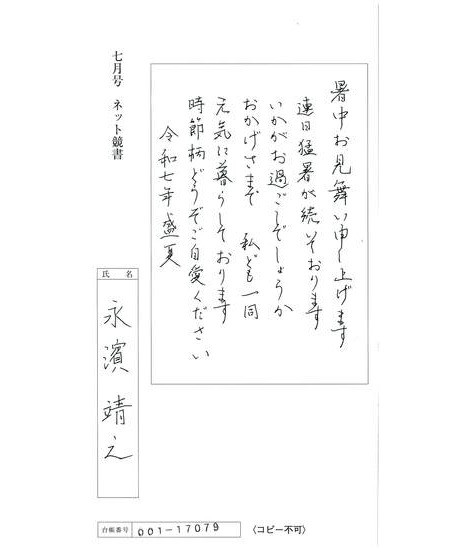 暑中お見舞い申し上げます
連日猛暑が続いております
いかがお過ごしでしょうか
おかげさまで 私ども一同
元気に暮らしております
時節柄どうぞご自愛ください
令和七年盛夏
七月号 ネット競書
氏名
永濱靖之
台帳番号 001-17079
〈コピー不可〉